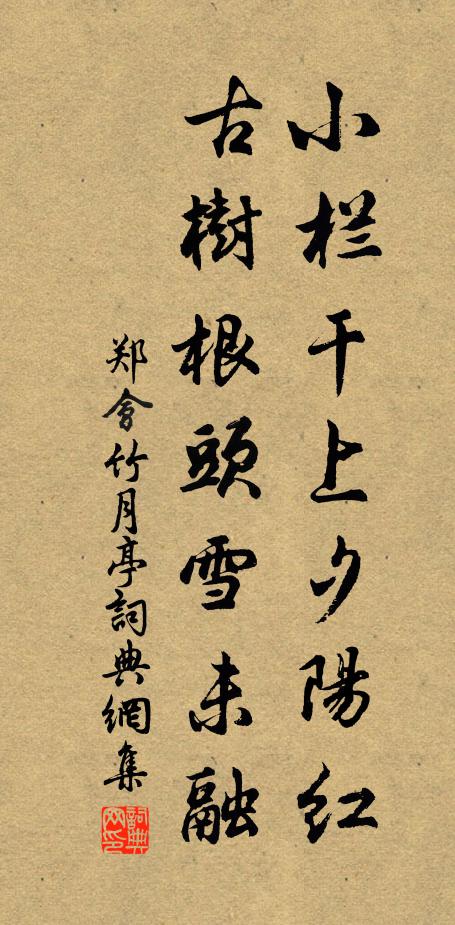 小栏干上夕陽红
古樹根頭雪未融
郑會竹月亭詞典網集
詞典網印